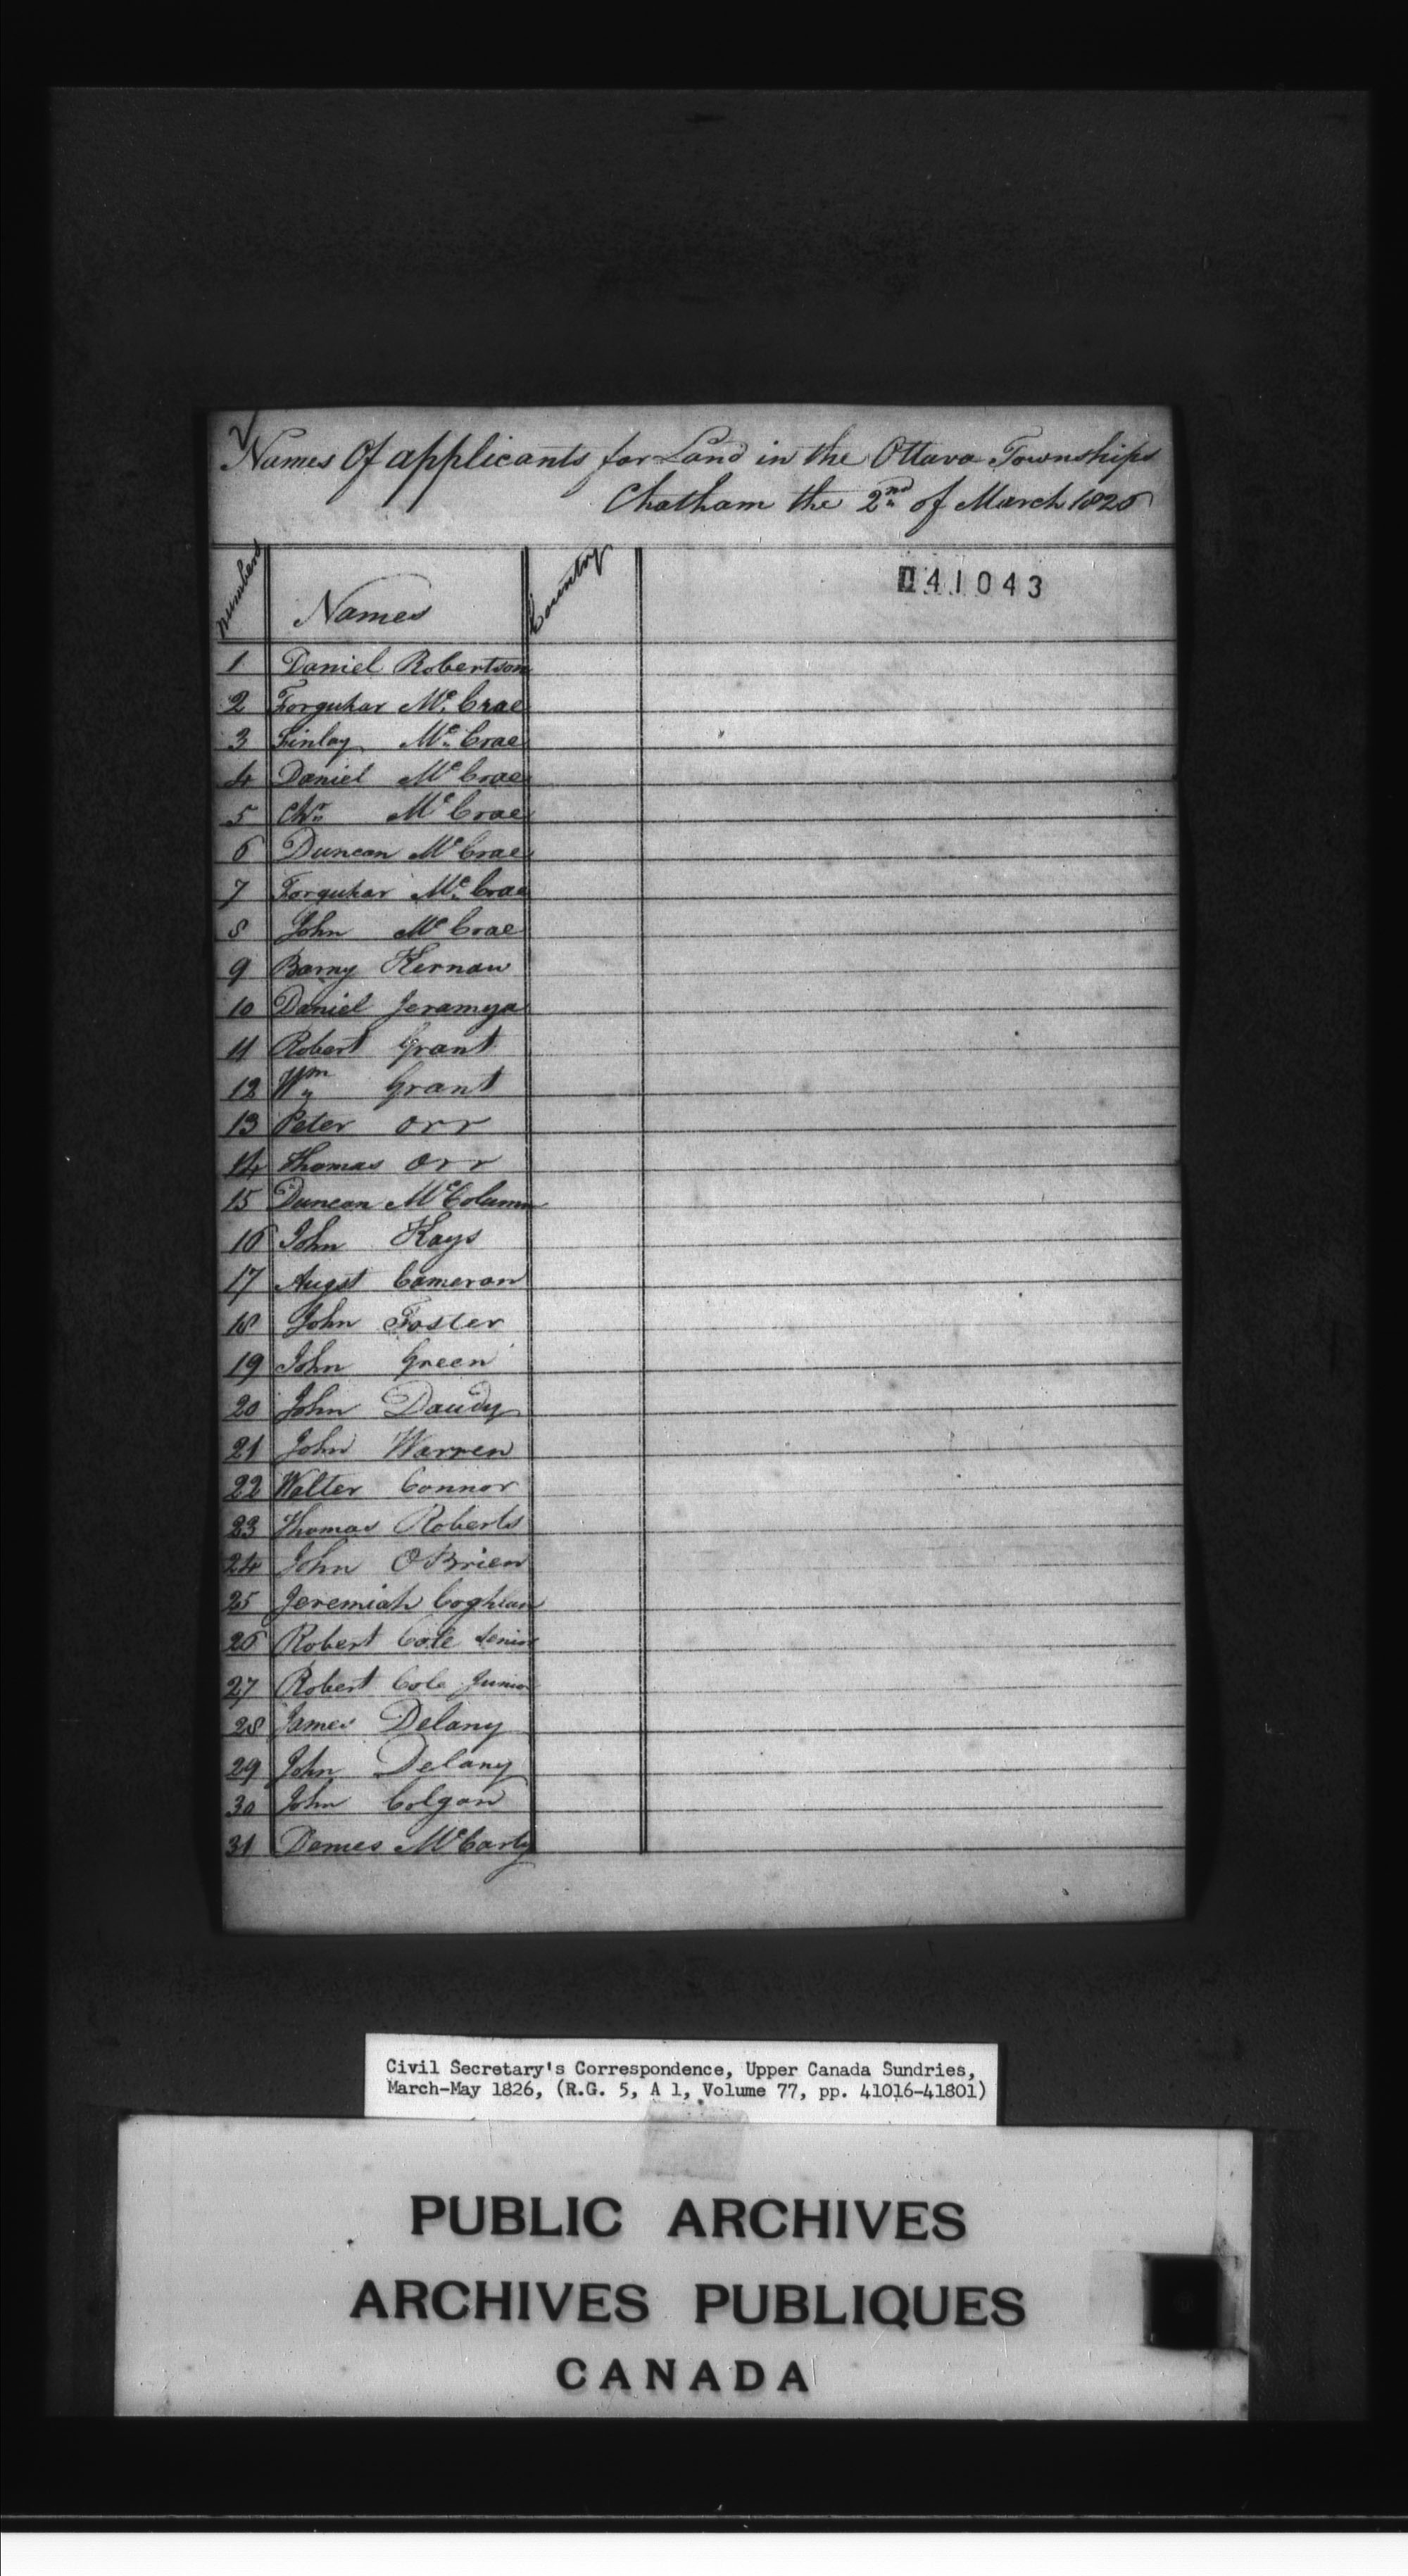 Names Of applicants for Land in the Ottava Townships
Chatham the 2nd of March 1826
numbers Names Country
41043
1 Daniel Robertson
2 Forquhar Mc Crae
3 Finlay Mc Crae
4 Daniel Mc Crae
5 Chr Mc Crae
6 Duncan Mc Crae
7 Forquhar Mc Crae
8 John Mc Crae
9 Barny Kernan
10 Daniel Jeramya
11 Robert Grant
12 Wm Grant
13 Peter Orr
14 Thomas Orr
15 Duncan McColumn
16 John Kays
17 Augst Cameron
18 John Foster
19 John Green
20 John Dandy
21 John Warren
22 Walter Connor
23 Thomas Roberts
24 John OBrien
25 Jeremiah Coghlan
26 Robert Cole Senior
27 Robert Cole Junior
28 James Delany
29 John Delany
30 John Colgan
31 Denies McCarty
Civil Secretary's Correspondence, Upper Canada Sundries,
March-May 1826, (R.G. 5, A 1, Volume 77, pp. 41016-41801)
PUBLIC ARCHIVES
ARCHIVES PUBLIQUES
CANADA